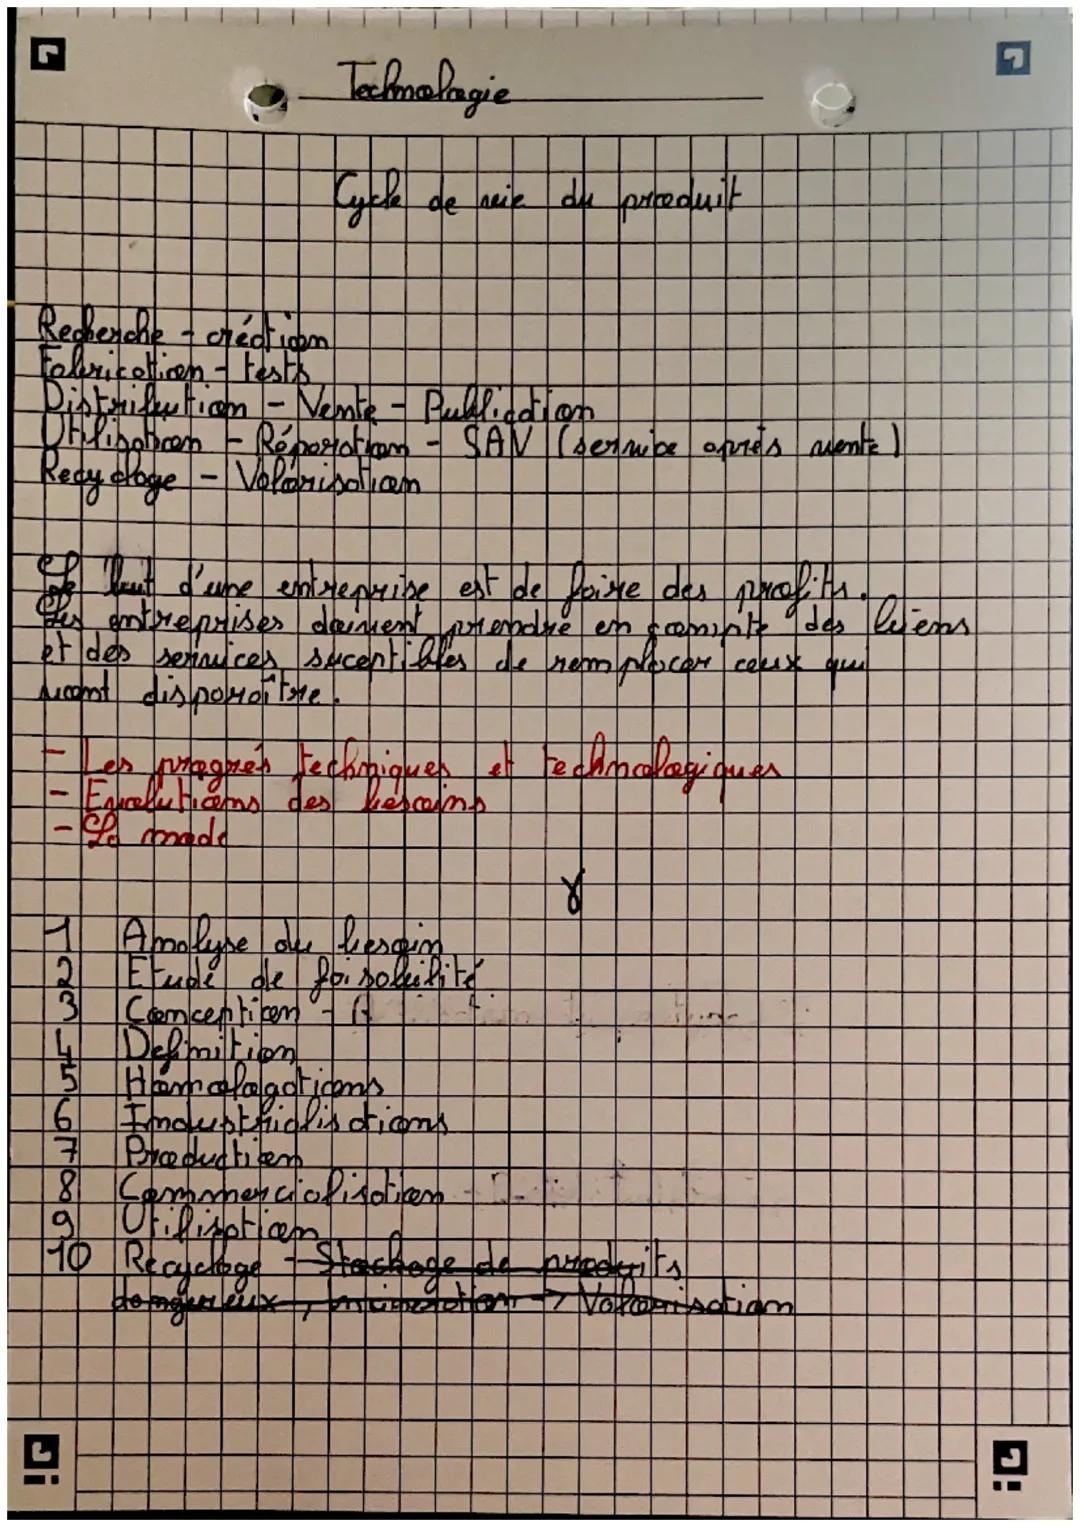 Technologie
Cycle de vie du produit
Recherche - création
Fabrication - tests
Distribution - Vente - Publication
Utilisation - Réparation - SAV (service après vente)
Recyclage - Valorisation
Le but d'une entreprise est de faire des profits.
Les entreprises doivent prendre en compte des biens
et des services suceptibles de remplacer ceux qui
vont disparaître.
- Les progrés techniques et technologiques
- Evolutions des besoins
- La mode
1 Analyse du besoin
2 Etude de faisabilité
3 Conception -
4 Definition
5 Homologations
6 Industrialisations
7 Production
8 Commercialisation -
9 Utilisation
10 Recyclage - Stockage de produits
dangereux, incineration -> Valorisation